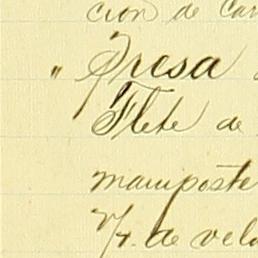 cion de Car
" Presa
Flete de
mamposte
2/4. de velo